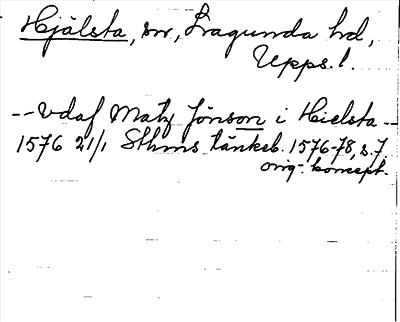 Hjälsta, sn, Lagunda hd,
Upps. l.
-- vdaf Matz Jönson i Hielsta --
1576 21/1 Sthms tänkeb. 1576-78, s. 7.
orig.-koncept.